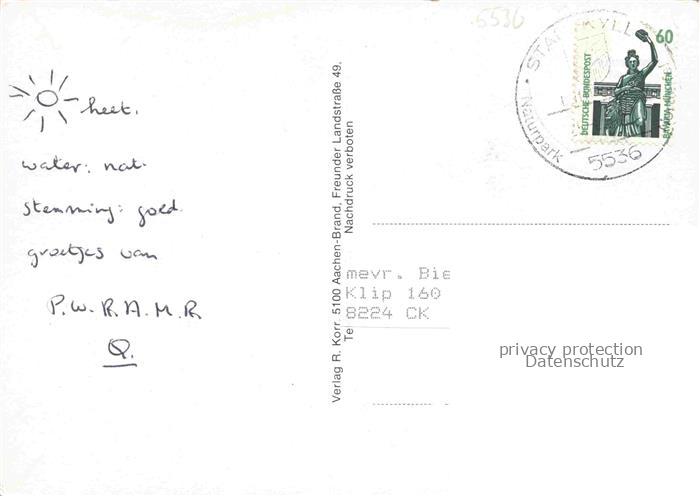 5536
heet.
water: nat.
stemming: goed.
groetjes van
P.W.R.A.M.R
Q.
Verlag R. Korr. 5100 Aachen-Brand, Freunder Landstraße 49.
Nachdruck verboten
STADTKYLL
Naturpark
5536
60
DEUTSCHE BUNDESPOST
BAVARIA MÜNCHEN
mevr. Bie
Klip 160
8224 CK
privacy protection
Datenschutz